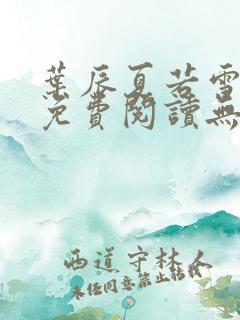 葉辰夏若雪
免費閱讀無
西道守林人
未經同意禁止轉載